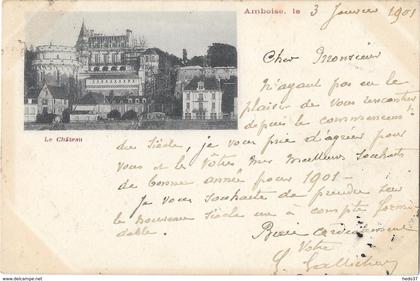 Amboise, le 3 Janvier 1901
Cher Monsieur
N'ayant pas eu le
plaisir de vous rencontrer
depuis le commencemt
du siècle, je vous prie d'agréer pour
vous et les vôtres mes meilleurs souhaits
de bonne année pour 1901 -
Je vous souhaite de prendre sur
le nouveau siècle un à compte formi-
dable.
Bien cordialement
Votre
Le Château
hedis37